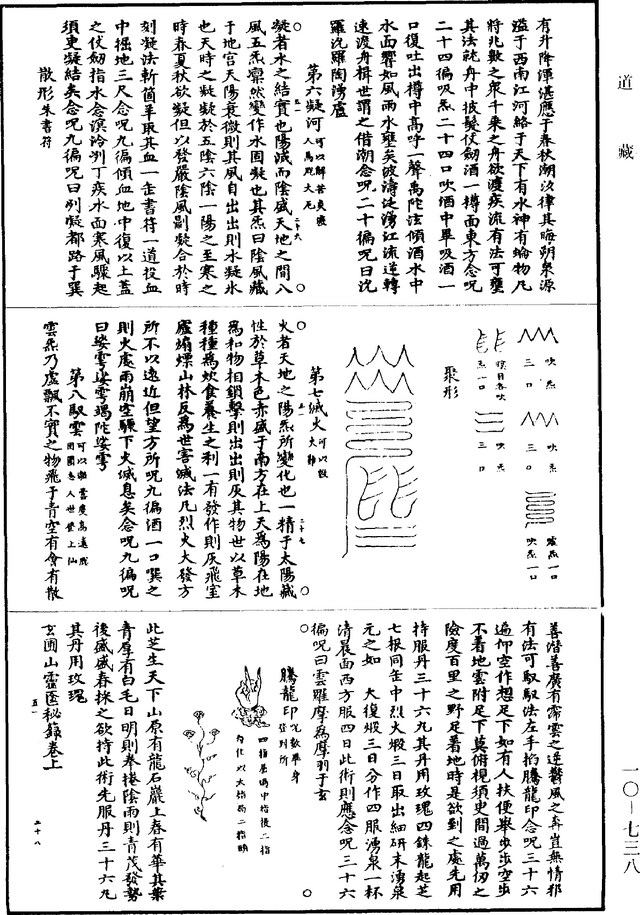 道藏
有升降渾湛應于春秋潮汐律其晦朔泉源
溢于西南江河絡于天下有水神有輪物凡
將兆數之衆千乘之舟欲渡疾流有法可壅
其法詵舟中披髮仗劒酒一樽面東方念呪
二十四徧吸炁二十四口吹酒中畢吸酒一
口復吐出樽中高呼一聲萬陀法傾酒水中
水面響如風雨水壅矣波濤泛湧江流逆轉
速渡舟楫世謂之借潮念呪二十徧呪曰沇
羅沇羅陶湧盧
第六凝河可以解苦炎暖人馬死大厄
凝者水之結實也陽滅而陰盛天地之間八
風五炁凛然變作水固凝也其炁曰陰風藏
于地宮天陽衰微則其風自出出則水凝氷
也天時之凝凝於五陰六陰一陽之至寒之
時春夏秋欲凝但以發嚴陰風副凝合於時
刻凝法斬筒羊取其血一缶書符一道投血
中掘地三尺念呪九徧傾血地中復以土蓋
之仗劒指水念溟泠冽丁疾水面寒風驟起
須更凝結矣念呪九徧呪曰冽凝都路于巽
散形朱書符
吹炁三口
吹炁三口
吸炁一口吹炁一口
吸炁一口
吹炁三口
聚形
第七滅火可以救大難
火者天地之陽炁所變化也一精于太陽藏
性於草木色赤盛于南方在上天為陽在地
為和物相鎖擊則出出則灰其物世以草木
種種為炊食養生之利一有發作則灰飛室
廬煽爍山林反為世害滅法凡烈火大發方
所不以遠近但望方所呪九徧酒一口噀之
則火處雨崩空驟下火滅息矣念呪九徧呪
曰娑雩娑雩竭陀娑雩
第八馭雲可以避害度高遠我周國患人世登上仙
雲炁乃虛飄不實之物飛于青空有會有散
善潛善廣有霈雲之逆欝風之奔豈無情邪
有法可馭馭法左手掐騰龍印念呪三十六
遍仰空作想足下如有人扶便舉步步空步
不着地雲附足下莫俯視須史間過萬仞之
險度百里之野足着地時是欲到之處先用
持服丹三十六丸其丹用玫瑰四銖龍起芝
七根同缶中烈火煅三日取出細研末湧泉
元之如大復煅三日分作四服湧泉一杯
清晨面西方服四日此術則應念呪三十六
徧呪曰雲羅摩為摩羽于玄
騰龍印呪數畢身登到所
四指屈碼中指後二指
內化以大指面二指頭
此芝生天下山原有龍石巖上春有華其葉
青厚有白毛日明則拳捲陰雨則青茂發勢
後盛盛春採之欲持此術先服丹三十六丸
其丹用玫瑰
玄圃山靈匱秘籙卷上
一〇—七三八